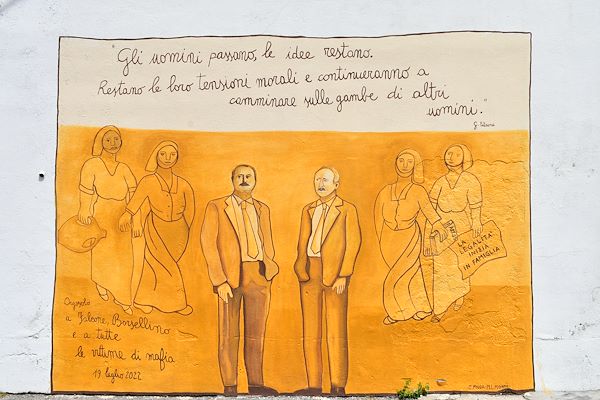 "Gli uomini passano, le idee restano.
Restano le loro tensioni morali e continueranno a
camminare sulle gambe di altri
uomini."
G. Falcone
LA
LEGALITÀ
INIZIA
IN FAMIGLIA
Orgosolo
a Falcone, Borsellino
e a tutte
le vittime di mafia
19 luglio 2022